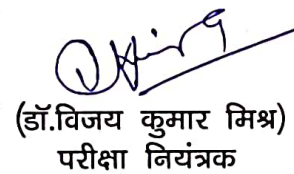 (डॉ.विजय कुमार मिश्र)
परीक्षा नियंत्रक